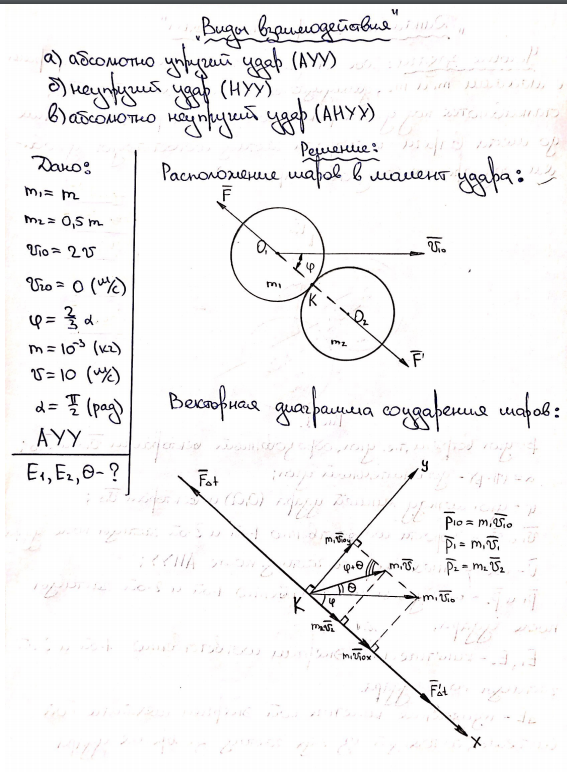 "Виды взаимодействия"
а) абсолютно упругий удар (АУУ)
б) неупругий удар (НУУ)
в) абсолютно неупругий удар (АНУУ)
Решение:
Дано:
m₁ = m
m₂ = 0,5 m
v₁₀ = 2v
v₂₀ = 0 (м/с)
φ = 2/3 α
m = 10⁻³ (кг)
v = 10 (м/с)
α = π/2 (рад)
АУУ
E₁, E₂, Θ - ?
Расположение шаров в момент удара:
F̅
O₁
φ
v̅₁₀
m₁
K
O₂
m₂
F̅'
Векторная диаграмма соударения шаров:
F̅Δt
y
m₁v̅₁₀y
φ+Θ
m₁v̅₁
Θ
K
φ
m₁v̅₁₀
m₂v̅₂
m₁v̅₁₀x
F̅'Δt
x
p̅₁₀ = m₁v̅₁₀
p̅₁ = m₁v̅₁
p̅₂ = m₂v̅₂